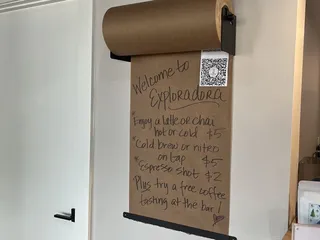 Welcome to
Exploradora
*Enjoy a latte or chai
hot or cold $5
*Cold brew or nitro
on tap $5
*Espresso shot $2
Plus try a free coffee
tasting at the bar!